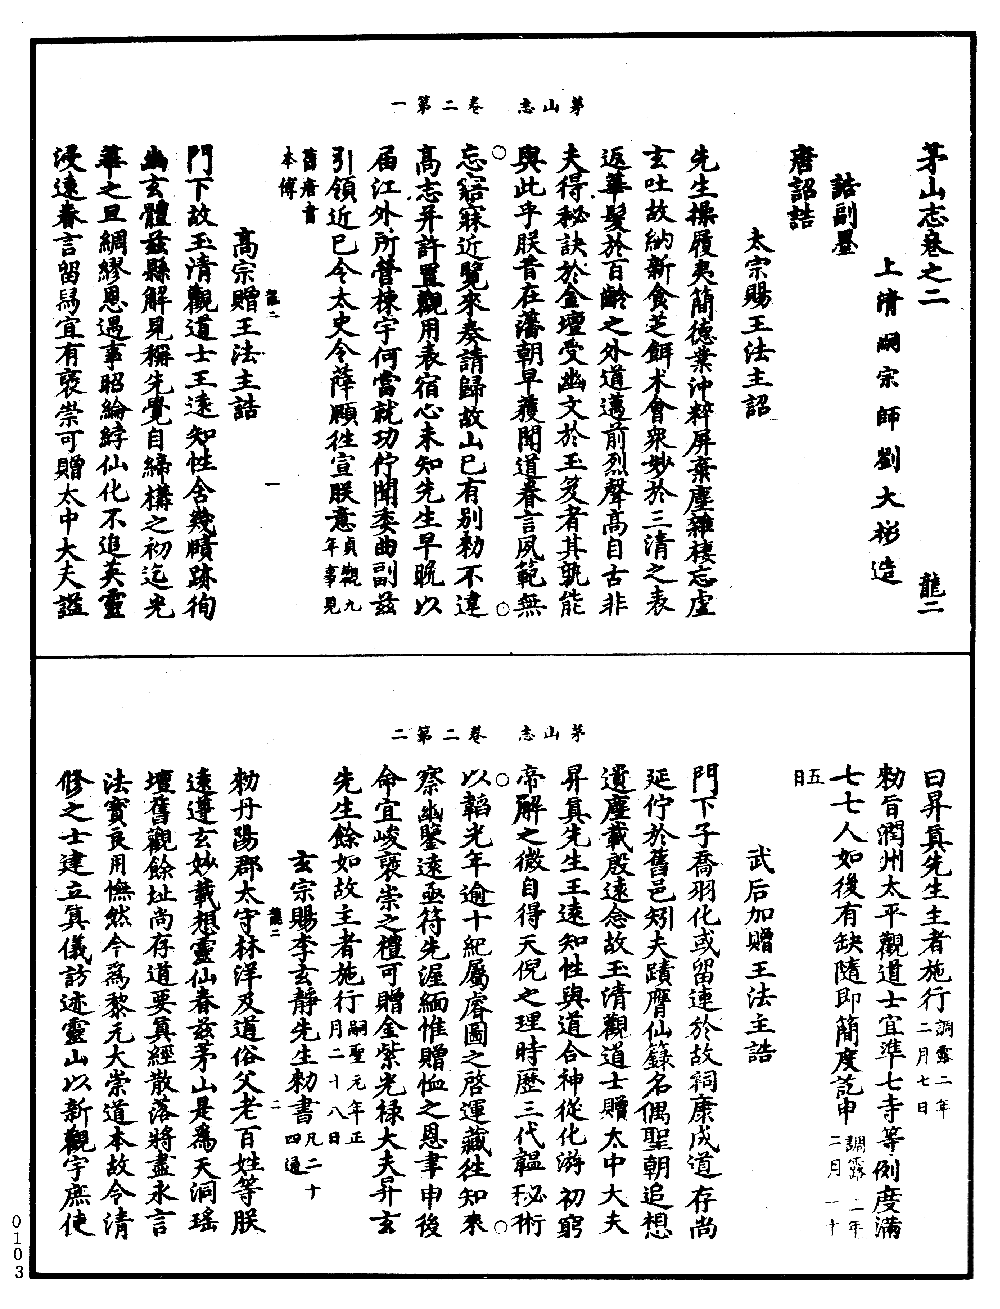 茅山志　卷二第一
茅山志卷之二　龍二
上清嗣宗師劉大彬造
誥副墨
唐詔誥
太宗賜王法主詔
先生操履夷簡德業沖粹屏棄塵雜棲志虛
玄吐故納新食芝餌朮會眾妙於三清之表
返華髮於百齡之外道邁前烈聲高自古非
夫得秘訣於金壇受幽文於玉笈者其孰能
與此乎朕昔在藩朝早獲聞道眷言夙範無
忘寤寐近覽來奏請歸故山已有別勑不違
高志并許置觀用表宿心未知先生早晚以
届江外所營棟宇何當就功佇聞委曲副茲
引領近已令太史令薛頥徃宣朕意貞觀九
年事見
舊唐書
本傳
高宗贈王法主誥
龍二　一
門下故玉清觀道士王遠知性含幾賾跡徇
幽玄體茲縣解見稱先覺自締構之初迄光
華之旦綢繆恩遇事昭綸綍仙化不追英靈
浸遠眷言留舄宜有褒崇可贈太中大夫諡
茅山志　卷二第二
曰昇真先生主者施行調露二年
二月七日
勑旨潤州太平觀道士宜準七寺等例度滿
七七人如後有缺隨即簡度訖申調露二年
二月二十
五
日
武后加贈王法主誥
門下子喬羽化或留連於故祠康成道存尚
延佇於舊邑矧夫蹟膺仙籙名偶聖朝追想
遺塵載殷遠念故玉清觀道士贈太中大夫
昇真先生王遠知性與道合神從化游初窮
帝解之微自得天倪之理時歷三代韞秘術
以韜光年逾十紀屬睿圖之啓運藏往知來
察幽鑒遠亟符先渥緬惟贈恤之恩聿申後
命宜峻褒崇之禮可贈金紫光祿大夫昇玄
先生餘如故主者施行嗣聖元年正
月二十八日
玄宗賜李玄靜先生勑書凡二十
四通
龍二　二
勑丹陽郡太守林洋及道俗父老百姓等朕
遠遵玄妙載想靈仙眷茲茅山是為天洞瑶
壇舊觀餘址尚存道要真經散落將盡永言
法寶良用憮然今為黎元大崇道本故令清
修之士建立真儀訪迹靈山以新觀宇庶使
0103